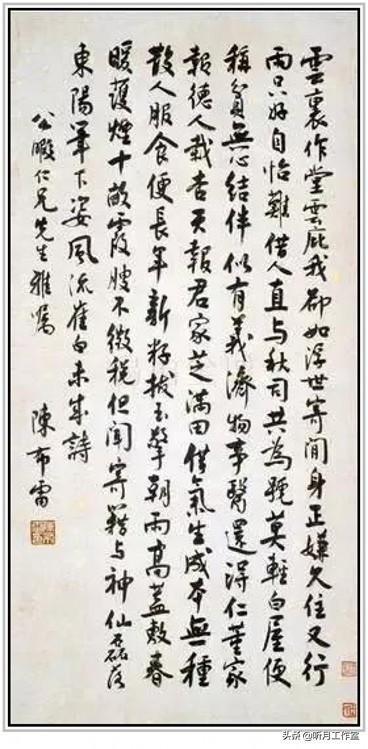 雲裏作堂雲庇我卻如浮世寄閒身正嫌久住又行
雨只好自怡難借人直与秋司共為號莫輕白屋便
稱貧無心結伴似有義濟物事醫還得仁董家
報德人栽杏天報君家芝滿田借氣生成本無種
散人服食便長年新籽拔玉擎朝雨高蓋敷春
暖護煙十畝霞腴不徵税但聞寄籍与神仙磊落
東陽筆下姿風流崔白未成詩
公暇仁兄先生雅嘱
陳布雷
头条@听月工作室